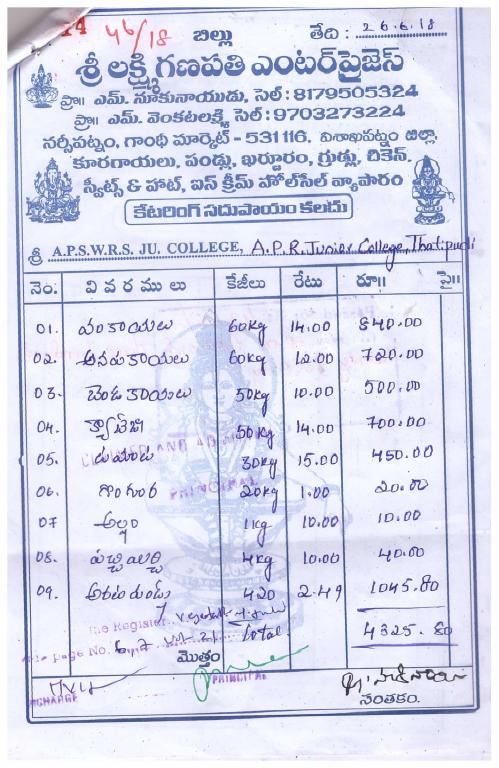 46/18 బిల్లు తేది : 26.6.18
శ్రీ లక్ష్మి గణపతి ఎంటర్‌ప్రైజెస్
ప్రొ॥ ఎమ్. నూకునాయుడు, సెల్ : 8179505324
ప్రొ॥ ఎమ్. వెంకటలక్ష్మి సెల్ : 9703273224
నర్సీపట్నం, గాంధీ మార్కెట్ - 531116, విశాఖపట్నం జిల్లా,
కూరగాయలు, పండ్లు, ఖర్జూరం, గ్రుడ్లు, చికెన్,
స్వీట్స్ & హాట్, ఐస్ క్రీమ్ హోల్‌సేల్ వ్యాపారం
కేటరింగ్ సదుపాయం కలదు
శ్రీ A.P.S.W.R.S. JU. COLLEGE, A.P.R. Junior College, Thatipudi
నెం. వివరములు కేజీలు రేటు రూ॥ పై॥
01. వంకాయలు 60kg 14.00 840.00
02. ఆనపకాయలు 60kg 12.00 720.00
03. బెండకాయలు 50kg 10.00 500.00
04. క్యాబేజి 50kg 14.00 700.00
05. టమాట 30kg 15.00 450.00
06. గొంగూర 20kg 1.00 20.00
07 అల్లం 1kg 10.00 10.00
08. పచ్చిమిర్చి 4kg 10.00 40.00
09. అరటిపండు 420 2.49 1045.80
the Register
Total 4325.80
page No. 6,7
మొత్తం
PRINCIPAL
CHARGE
సంతకం.